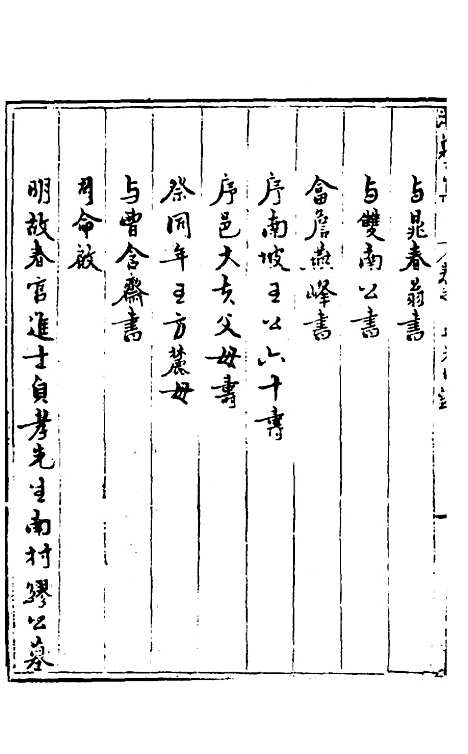 与晁春翁書
与雙南公書
畣詹燕峰書
序南坡王公六十壽
序邑大夫父母壽
祭同年王方麓母
与曹含齋書
命啟
明故春官進士貞孝先生南村繆公墓